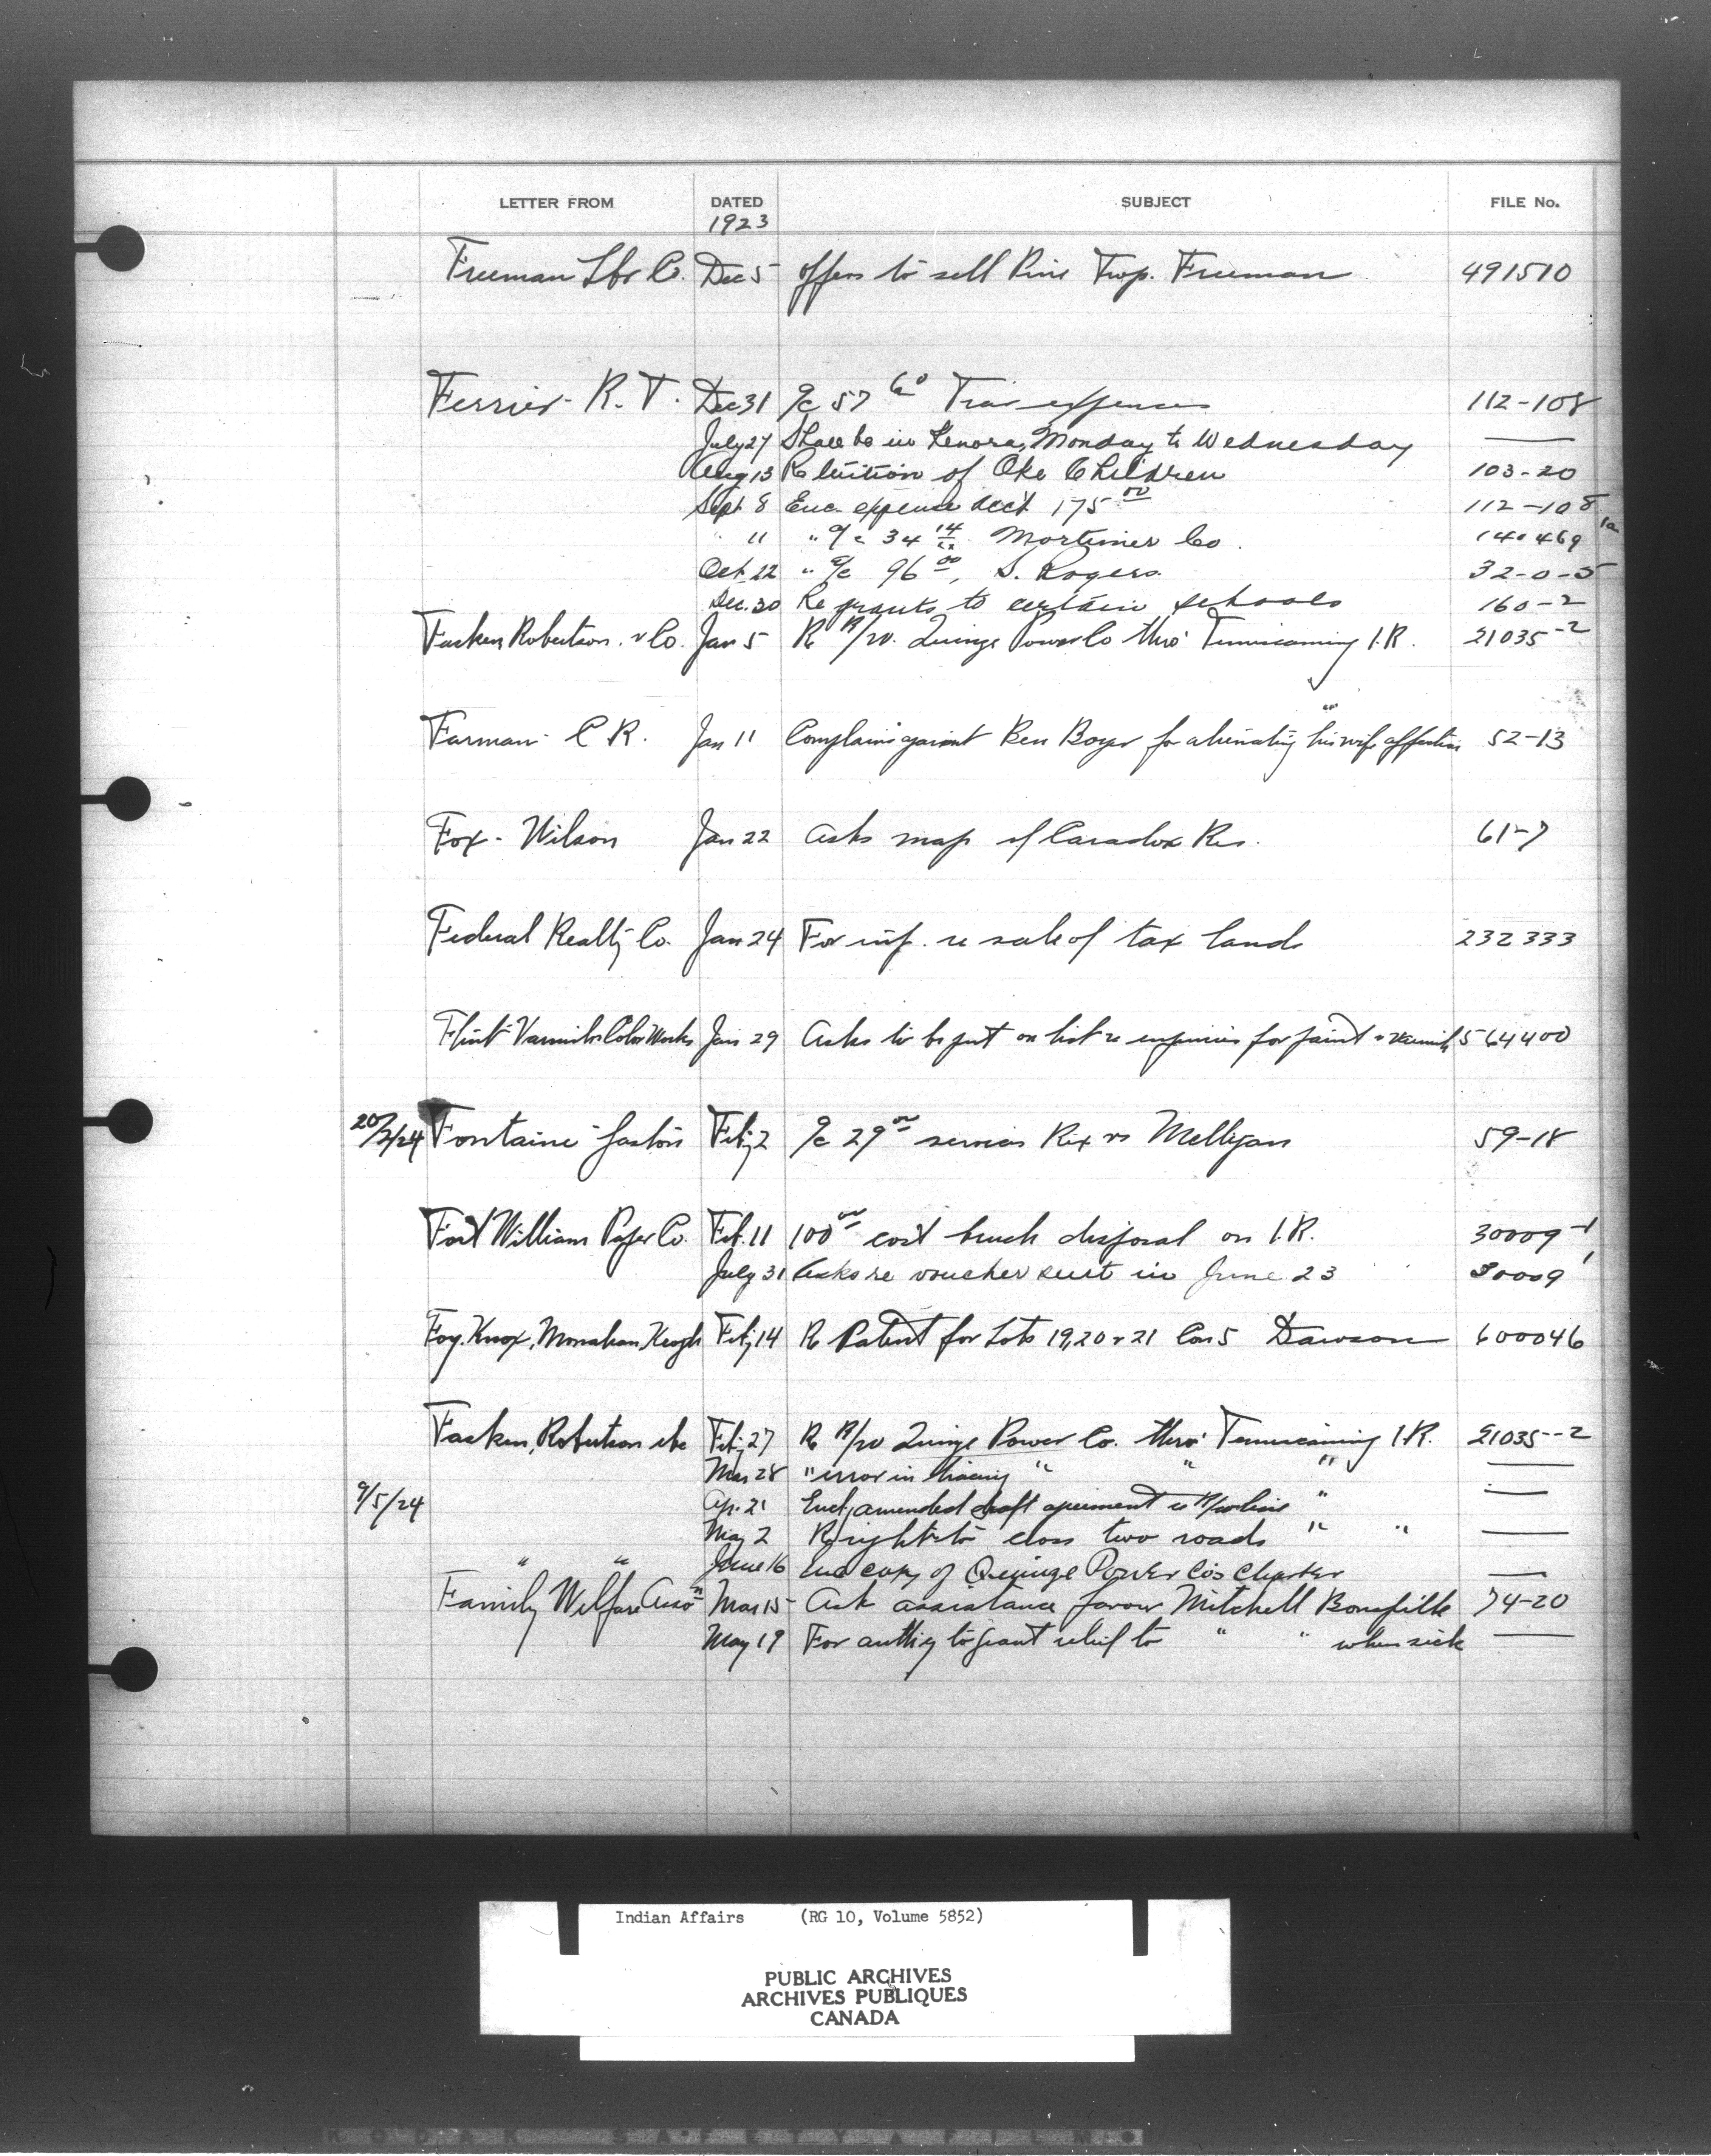 LETTER FROM DATED SUBJECT FILE No.
1923
Freeman Lbr Co. Dec 5 offers to sell Pine Twp. Freeman 491510
Ferrier - R. T. Dec 31 a/c 57 60 Trav expenses 112-108
July 27 Shall be in Kenora, Monday to Wednesday —
Aug 13 Re tuition of Oke Children 103-20
Sept 8 Enc. expense acct 175 00 112-108
" 11 " a/c 34 14 Mortimer Co. 140469 1a
Oct. 22 " a/c 96 00, S. Rogers. 32-0-5
Dec. 30 Re grants to certain schools 160-2
Fasken Robertson & Co. Jan 5 Re R/W. Quinze Power Co thro' Temiscaming I.R. 21035-2
Farman - C R. Jan 11 Complains against Ben Boyer for alienating his wife affection 52-13
Fox - Wilson Jan 22 Asks map of Caradox Res. 61-7
Federal Realty Co. Jan 24 For inf. re sale of tax lands 232333
Flint Varnish & Color Works Jan 29 Asks to be put on list re enquiries for paint & varnish 564400
20/2/24 Fontaine - Gaston Feby 2 a/c 29 00 services Rex vs Melligan 59-18
Fort William Paper Co. Feb. 11 100 00 cost brush disposal on I.R. 30009-1
July 31 Asks re voucher sent in June 23 30009 1
Foy, Knox, Monahan, Keogh Feby 14 Re Patent for Lots 19, 20 & 21 Con 5 Dawson 600046
Fasken, Robertson etc Feby 27 Re R/W Quinze Power Co. thro' Temiscaming I.R. 21035--2
Mar 28 " error in tracing " " " —
9/5/24 Ap. 21 Encl, amended draft agreement re R/W line " —
May 2 Re right to close two roads " " —
" " June 16 Enc copy of Quinze Power Co's Charter —
Family Welfare Asso'n Mar 15 Ask assistance favour Mitchell Bonspille 74-20
May 19 For authy to grant relief to " " when sick —
Indian Affairs (RG 10, Volume 5852)
PUBLIC ARCHIVES
ARCHIVES PUBLIQUES
CANADA